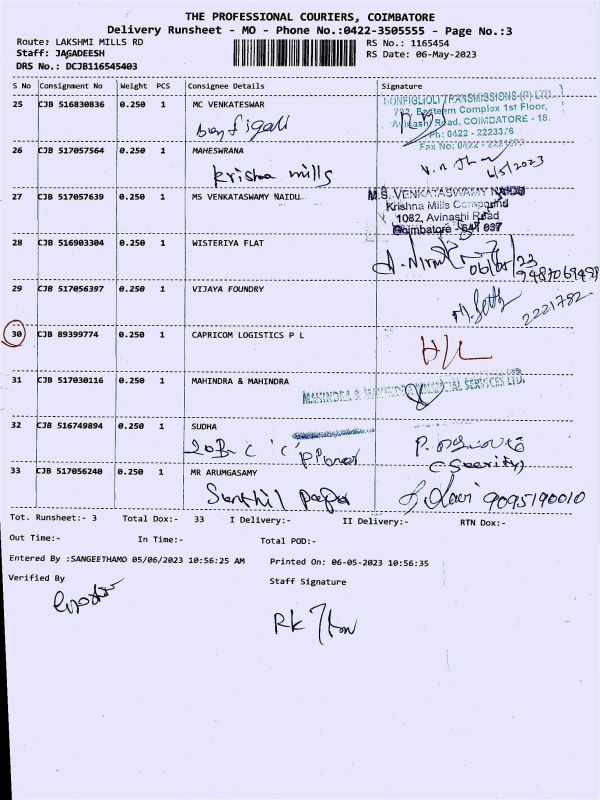 THE PROFESSIONAL COURIERS, COIMBATORE
Delivery Runsheet - MO - Phone No.:0422-3505555 - Page No.:3
Route: LAKSHMI MILLS RD
RS No.: 1165454
Staff: JAGADEESH
RS Date: 06-May-2023
DRS No.: DCJB116545403
S No Consignment No Weight PCS Consignee Details Signature
25 CJB 516830836 0.250 1 MC VENKATESWAR
BONFIGLIOLI TRANSMISSIONS (P) LTD.
Eastern Complex 1st Floor,
Avinashi Road, COIMBATORE - 18.
26 CJB 517057564 0.250 1 MAHESWRANA
krishna mills
4/5/2023
27 CJB 517057639 0.250 1 MS VENKATASWAMY NAIDU
M.S. VENKATASWAMY NAIDU
Krishna Mills Compound
1082, Avinashi Road
Coimbatore - 641 037
28 CJB 516903304 0.250 1 WISTERIYA FLAT
29 CJB 517056397 0.250 1 VIJAYA FOUNDRY
2221782
30 CJB 89399774 0.250 1 CAPRICOM LOGISTICS P L
31 CJB 517030116 0.250 1 MAHINDRA & MAHINDRA
MAHINDRA & MAHINDRA FINANCIAL SERVICES LTD.
32 CJB 516749894 0.250 1 SUDHA
33 CJB 517056240 0.250 1 MR ARUMGASAMY
Senthil paper
9095190010
Tot. Runsheet:- 3 Total Dox:- 33 I Delivery:- II Delivery:- RTN Dox:-
Out Time:- In Time:- Total POD:-
Entered By :SANGEETHAMO 05/06/2023 10:56:25 AM Printed On: 06-05-2023 10:56:35
Verified By Staff Signature